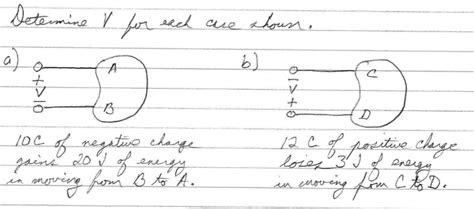 Determine V for each case shown.
a)
A
+
V
-
B
b)
C
-
V
+
D
10C of negative charge
gains 20 J of energy
in moving from B to A.
12 C of positive charge
loses 3 J of energy
in moving from C to D.